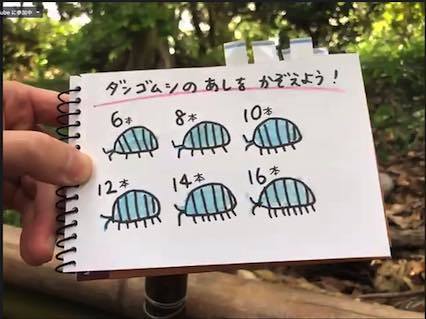 ube に参加中
ダンゴムシの あしを かぞえよう！
6本 8本 10本
12本 14本 16本